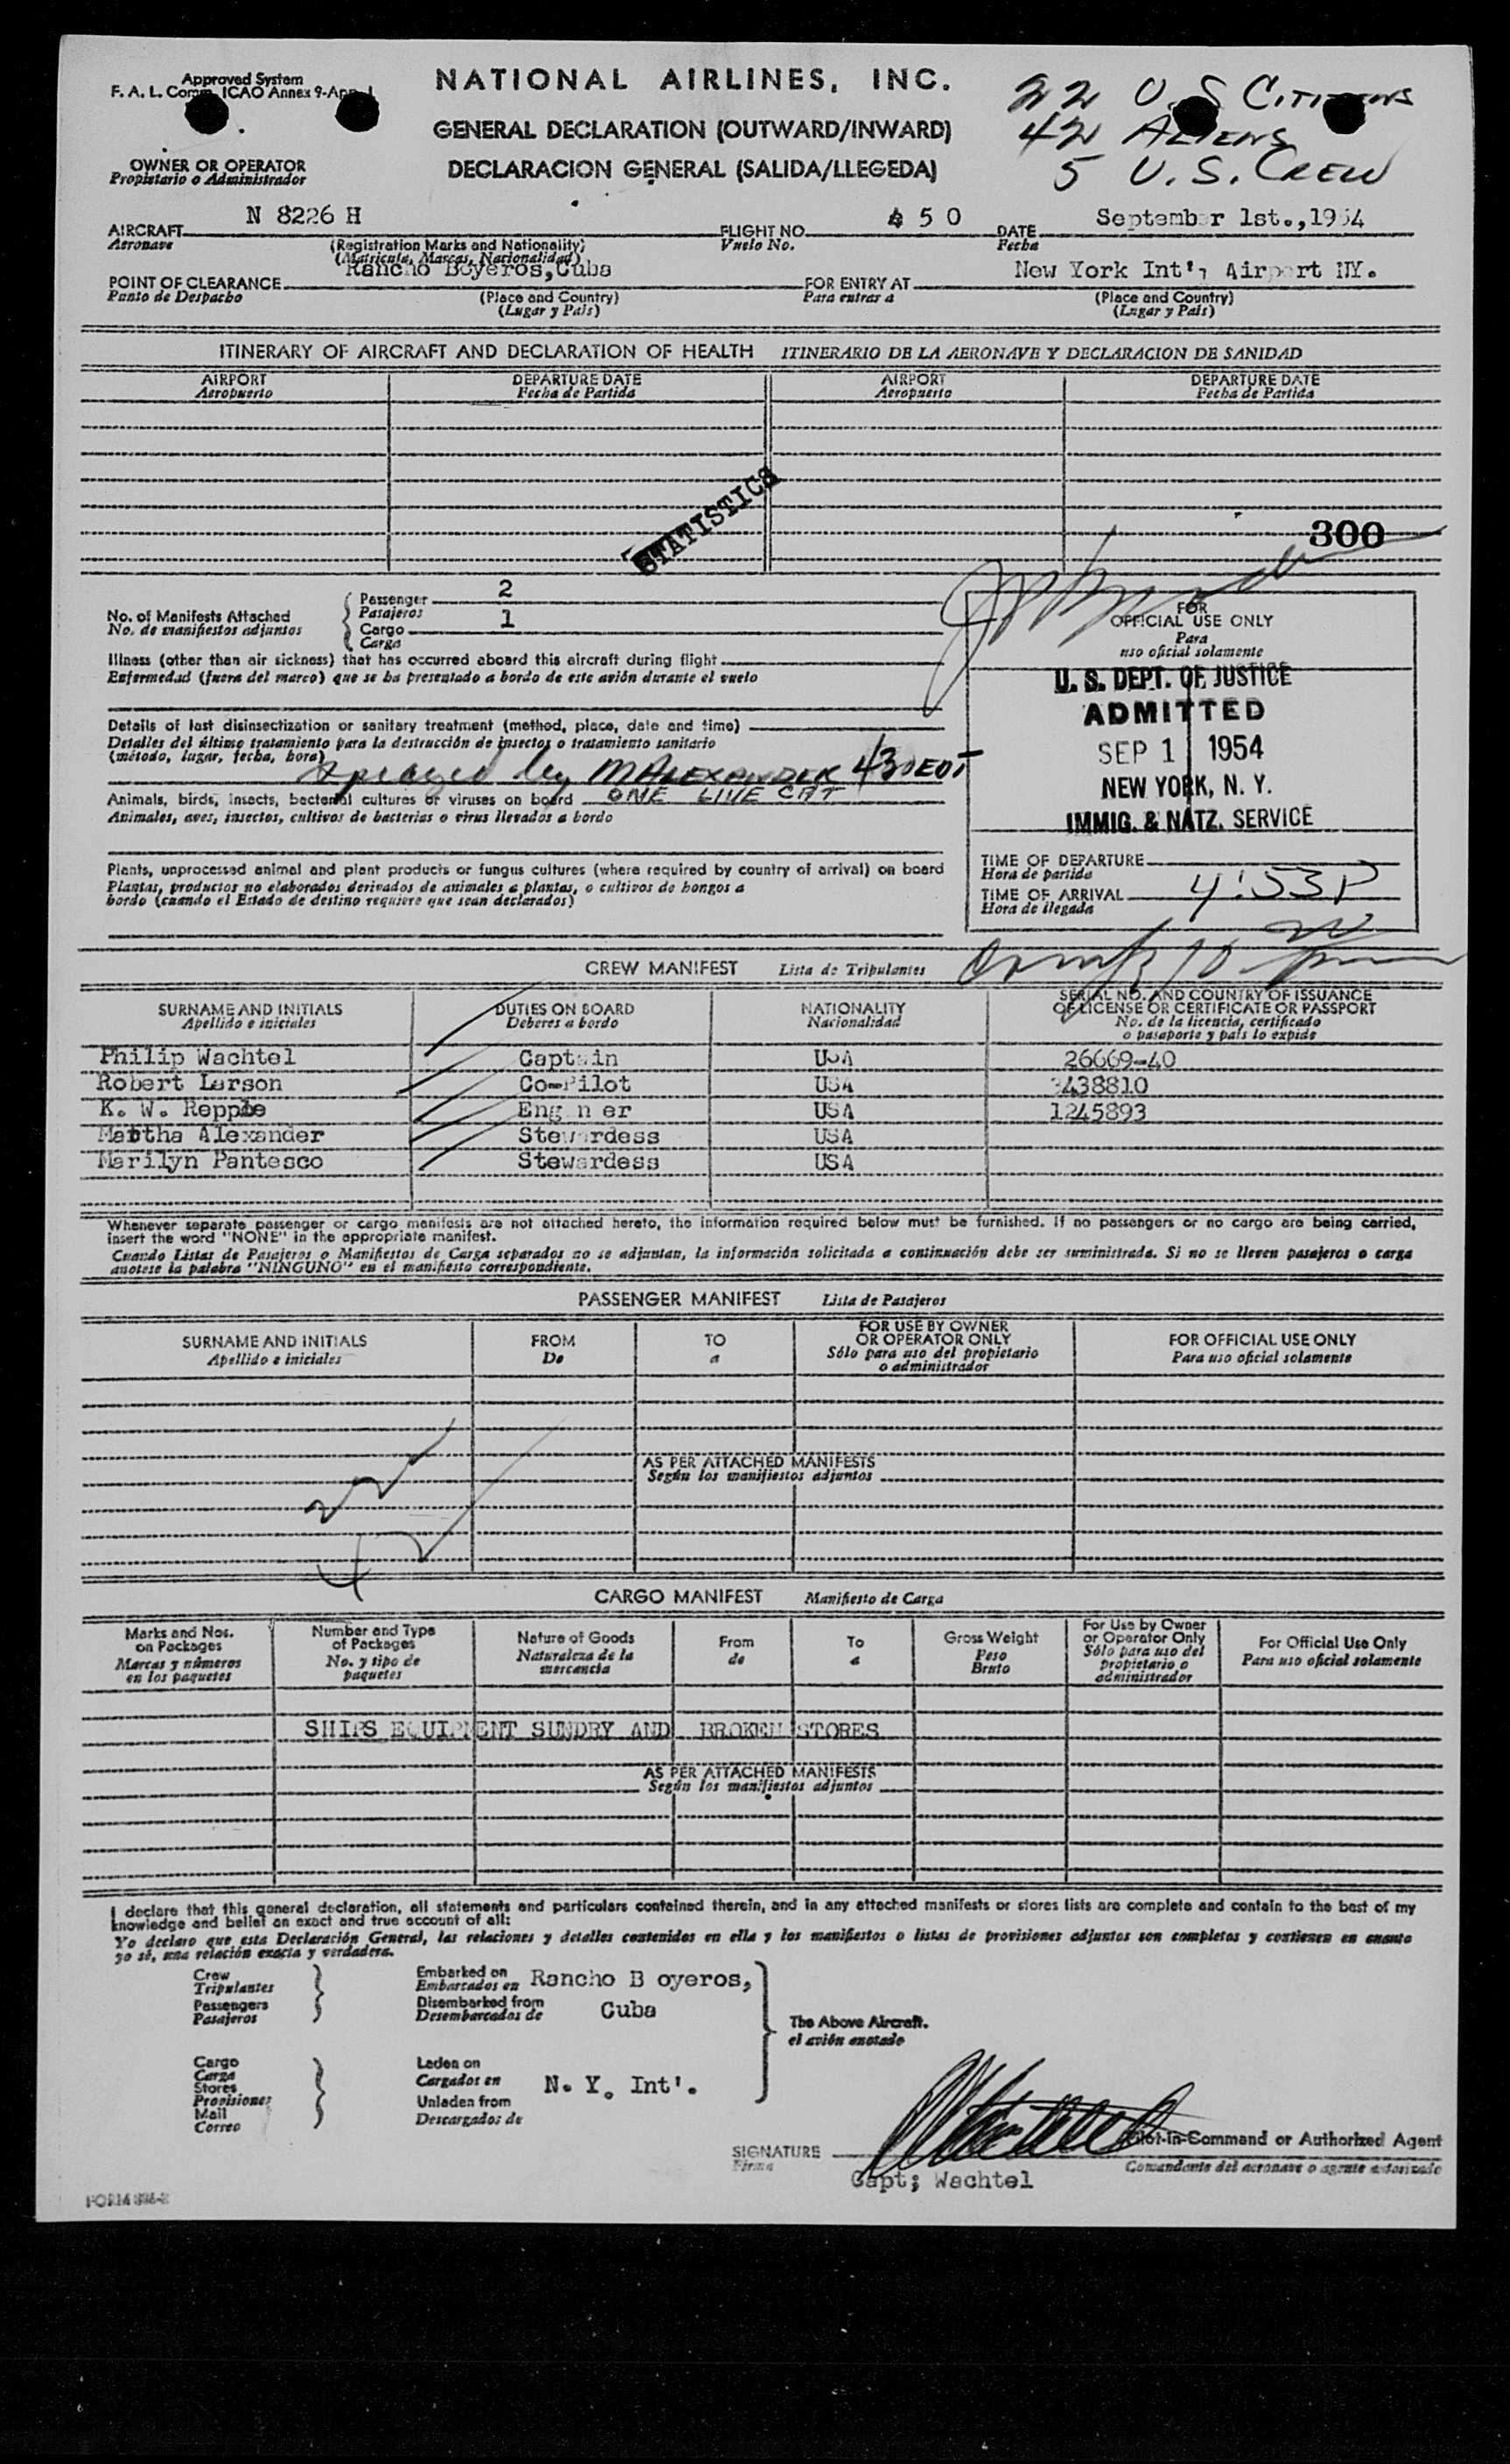 Approved System
F. A. L. Comm. ICAO Annex 9-App. I
NATIONAL AIRLINES, INC.
GENERAL DECLARATION (OUTWARD/INWARD)
DECLARACION GENERAL (SALIDA/LLEGEDA)
22 U.S CITIZENS
42 ALIENS
5 U.S. CREW
OWNER OR OPERATOR
Propietario o Administrador
AIRCRAFT N 8226 H FLIGHT NO. 450 DATE September 1st.,1954
Aeronave (Registration Marks and Nationality) Vuelo No. Fecha
(Matricula, Marcas, Nacionalidad)
POINT OF CLEARANCE Rancho Boyeros,Cuba FOR ENTRY AT New York Int'l Airport NY.
Punto de Despacho (Place and Country) Para entrar a (Place and Country)
(Lugar y Pais) (Lugar y Pais)
ITINERARY OF AIRCRAFT AND DECLARATION OF HEALTH ITINERARIO DE LA AERONAVE Y DECLARACION DE SANIDAD
AIRPORT DEPARTURE DATE AIRPORT DEPARTURE DATE
Aeropuerto Fecha de Partida Aeropuerto Fecha de Partida
STATISTICS
300
No. of Manifests Attached
No. de manifiestos adjuntos
Passenger 2
Pasajeros
Cargo 1
Carga
Illness (other than air sickness) that has occurred aboard this aircraft during flight
Enfermedad (fuera del mareo) que se ha presentado a bordo de este avión durante el vuelo
Details of last disinsectization or sanitary treatment (method, place, date and time)
Detalles del último tratamiento para la destrucción de insectos o tratamiento sanitario
(método, lugar, fecha, hora)
sprayed by MALEXANDER 430EDT
Animals, birds, insects, bacterial cultures or viruses on board ONE LIVE CAT
Animales, aves, insectos, cultivos de bacterias o virus llevados a bordo
Plants, unprocessed animal and plant products or fungus cultures (where required by country of arrival) on board
Plantas, productos no elaborados derivados de animales o plantas, o cultivos de hongos a
bordo (cuando el Estado de destino requiere que sean declarados)
FOR
OFFICIAL USE ONLY
Para
uso oficial solamente
U. S. DEPT. OF JUSTICE
ADMITTED
SEP 1 1954
NEW YORK, N. Y.
IMMIG. & NATZ. SERVICE
TIME OF DEPARTURE
Hora de partida
TIME OF ARRIVAL 4:53P
Hora de llegada
CREW MANIFEST Lista de Tripulantes
SURNAME AND INITIALS DUTIES ON BOARD NATIONALITY SERIAL NO. AND COUNTRY OF ISSUANCE
OF LICENSE OR CERTIFICATE OR PASSPORT
Apellido e iniciales Deberes a bordo Nacionalidad No. de la licencia, certificado
o pasaporte y pais lo expide
Philip Wachtel Captain USA 26669-40
Robert Larson Co-Pilot USA 438810
K. W. Repple Engineer USA 1245893
Martha Alexander Stewardess USA
Marilyn Pantesco Stewardess USA
Whenever separate passenger or cargo manifests are not attached hereto, the information required below must be furnished. If no passengers or no cargo are being carried,
insert the word "NONE" in the appropriate manifest.
Cuando Listas de Pasajeros o Manifiestos de Carga separados no se adjuntan, la información solicitada a continuación debe ser suministrada. Si no se lleven pasajeros o carga
anotese la palabra "NINGUNO" en el manifiesto correspondiente.
PASSENGER MANIFEST Lista de Pasajeros
SURNAME AND INITIALS FROM TO FOR USE BY OWNER
OR OPERATOR ONLY FOR OFFICIAL USE ONLY
Apellido e iniciales De a Sólo para uso del propietario
o administrador Para uso oficial solamente
AS PER ATTACHED MANIFESTS
Según los manifiestos adjuntos
22
42
CARGO MANIFEST Manifiesto de Carga
Marks and Nos.
on Packages
Marcas y números
en los paquetes
Number and Type
of Packages
No. y tipo de
paquetes
Nature of Goods
Naturaleza de la
mercancia
From
de
To
a
Gross Weight
Peso
Bruto
For Use by Owner
or Operator Only
Sólo para uso del
propietario o
administrador
For Official Use Only
Para uso oficial solamente
SHIPS EQUIPMENT SUNDRY AND BROKEN STORES
AS PER ATTACHED MANIFESTS
Según los manifiestos adjuntos
I declare that this general declaration, all statements and particulars contained therein, and in any attached manifests or stores lists are complete and contain to the best of my
knowledge and belief an exact and true account of all:
Yo declaro que esta Declaración General, las relaciones y detalles contenidos en ella y los manifiestos o listas de provisiones adjuntos son completos y contienen en cuanto
yo sé, una relación exacta y verdadera.
Crew
Tripulantes
Passengers
Pasajeros
Embarked on
Embarcados en Rancho B oyeros,
Disembarked from
Desembarcados de Cuba
The Above Aircraft.
el avión anotado
Cargo
Carga
Stores
Provisiones
Mail
Correo
Laden on
Cargados en N. Y. Int'.
Unladen from
Descargados de
SIGNATURE
Firma
Pilot-in-Command or Authorized Agent
Comandante del aeronave o agente autorizado
Capt; Wachtel